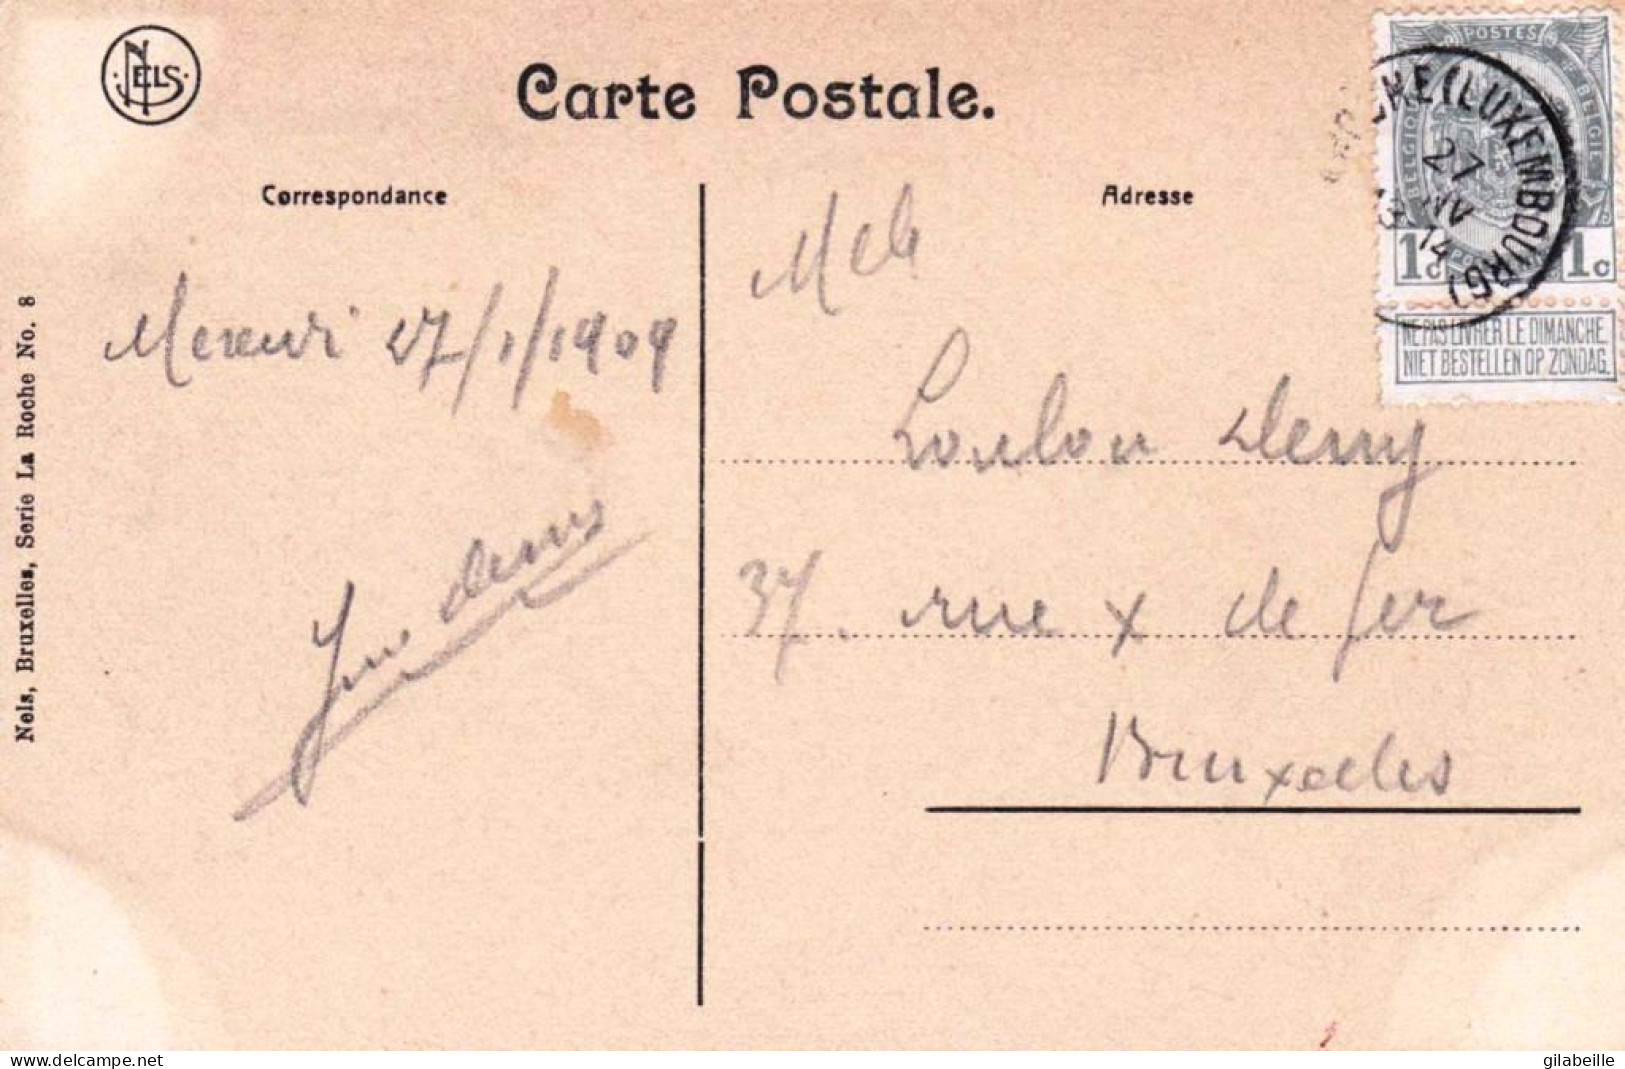 NELS
Carte Postale.
Correspondance
Adresse
POSTES
BELGIQUE
BELGIË
1c 1c
NE PAS LIVRER LE DIMANCHE
NIET BESTELLEN OP ZONDAG.
(LUXEMBOURG)
27
14
Mercredi 27/1/1909
Melle
Loulou
37. rue x de fer
Bruxelles
Nels, Bruxelles, Serie La Roche No. 8
www.delcampe.net
gilabeille